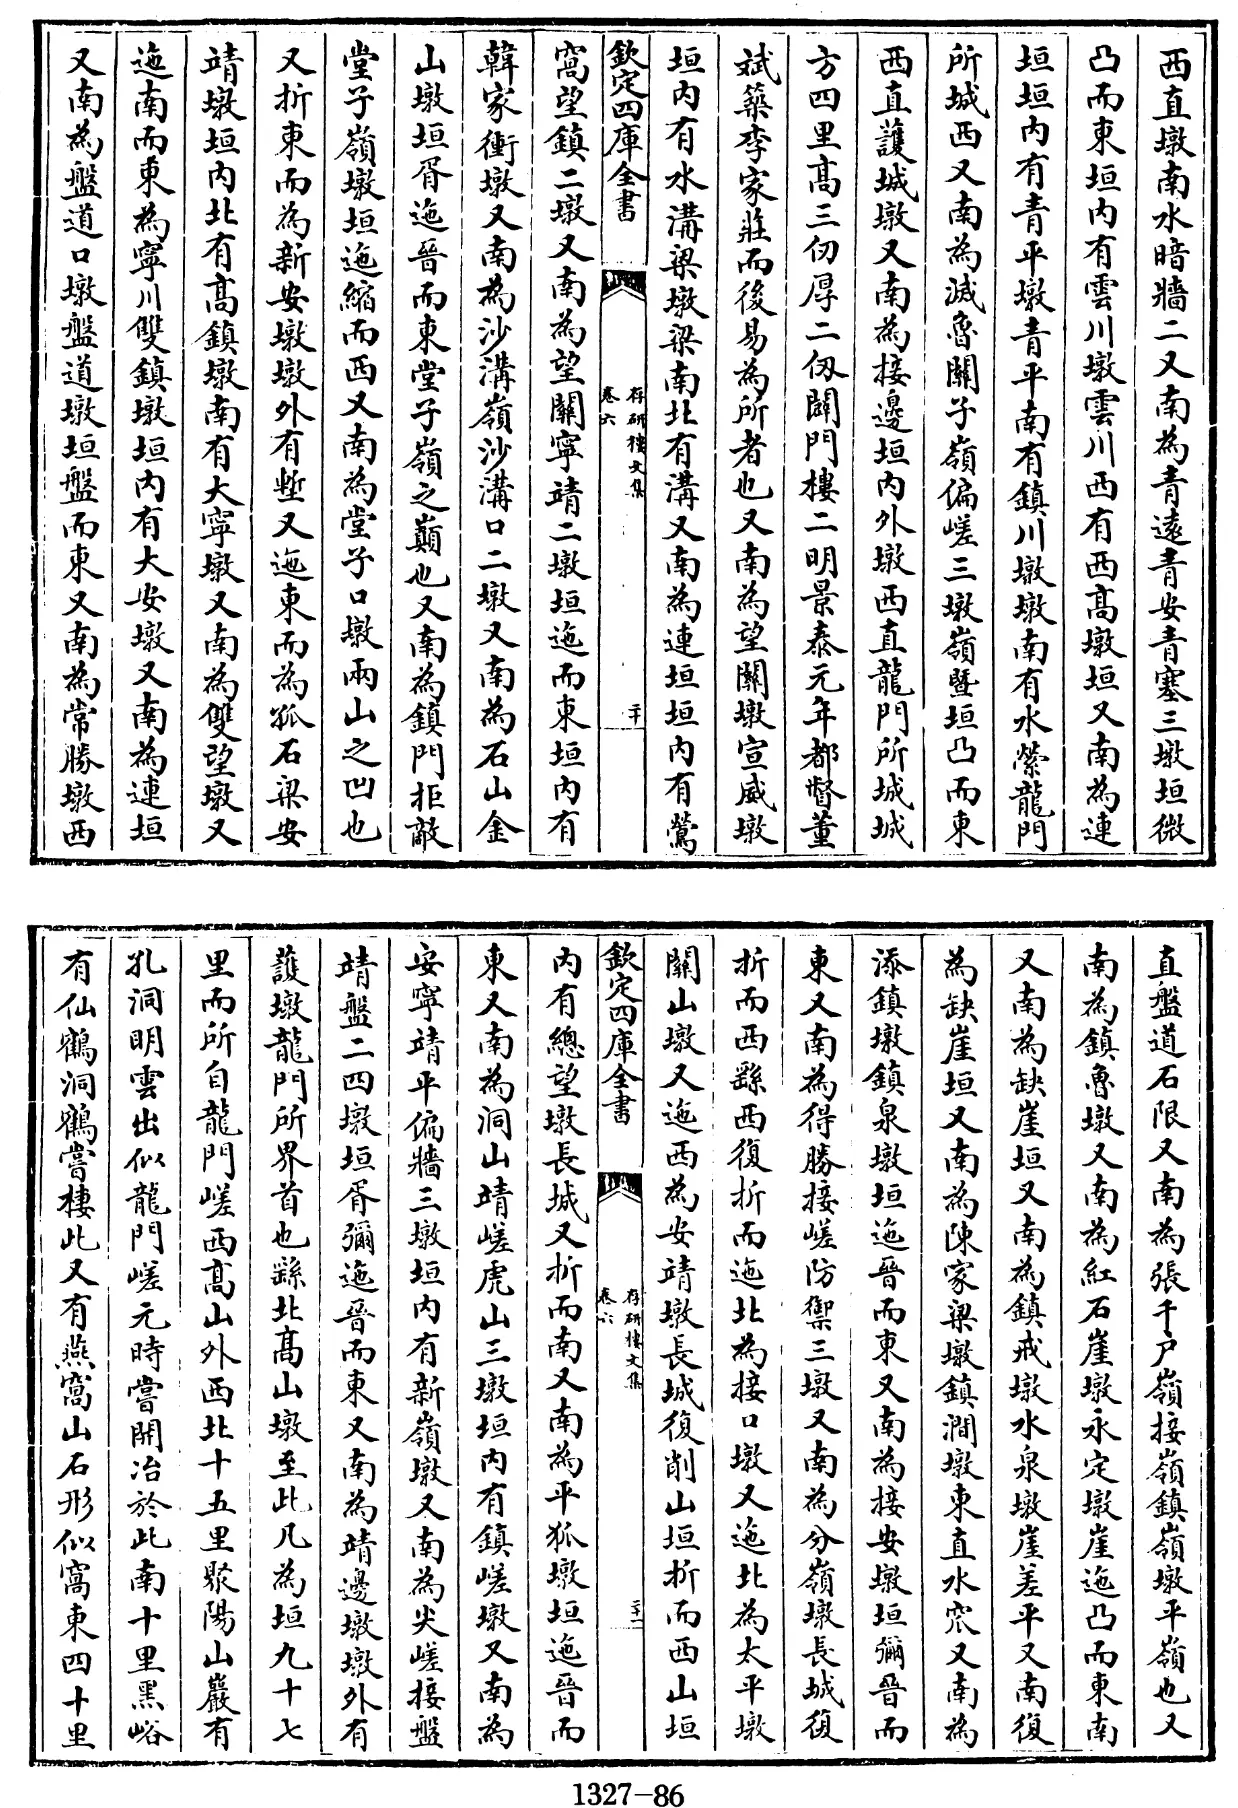 西直墩南水暗牆二又南為青遠青安青塞三墩垣微
凸而東垣内有雲川墩雲川西有西高墩垣又南為連
垣垣内有青平墩青平南有鎮川墩墩南有水縈龍門
所城西又南為滅魯關子嶺偏嵯三墩嶺暨垣凸而東
西直護城墩又南為接邊垣内外墩西直龍門所城城
方四里高三仞厚二仞闢門樓二明景泰元年都督董
斌築李家莊而後易為所者也又南為望關墩宣威墩
垣内有水溝梁墩梁南北有溝又南為連垣垣内有鶯
欽定四庫全書
存研樓文集
卷六
二十
窩望鎮二墩又南為望關寧靖二墩垣迤而東垣内有
韓家衝墩又南為沙溝嶺沙溝口二墩又南為石山金
山墩垣胥迤晉而東堂子嶺之巔也又南為鎮門拒敵
堂子嶺墩垣迤縮而西又南為堂子口墩兩山之凹也
又折東而為新安墩墩外有塹又迤東而為孤石梁安
靖墩垣内北有高鎮墩南有大寧墩又南為雙望墩又
迤南而東為寧川雙鎮墩垣内有大安墩又南為連垣
又南為盤道口墩盤道墩垣盤而東又南為常勝墩西
直盤道石限又南為張千户嶺接嶺鎮嶺墩平嶺也又
南為鎮魯墩又南為紅石崖墩永定墩崖迤凸而東南
又南為缺崖垣又南為鎮戒墩水泉墩崖差平又南復
為缺崖垣又南為陳家梁墩鎮澗墩東直水窊又南為
添鎮墩鎮泉墩垣迤晉而東又南為接安墩垣彌晉而
東又南為得勝接嵯防禦三墩又南為分嶺墩長城復
折而西繇西復折而迤北為接口墩又迤北為太平墩
關山墩又迤西為安靖墩長城復削山垣折而西山垣
欽定四庫全書
存研樓文集
卷六
二十一
内有總望墩長城又折而南又南為平狐墩垣迤晉而
東又南為洞山靖嵯虎山三墩垣内有鎮嵯墩又南為
安寧靖平偏牆三墩垣内有新嶺墩又南為尖嵯接盤
靖盤二四墩垣胥彌迤晉而東又南為靖邊墩墩外有
護墩龍門所界首也繇北高山墩至此凡為垣九十七
里而所自龍門嵯西高山外西北十五里聚陽山巖有
孔洞明雲出似龍門嵯元時嘗開冶於此南十里黑峪
有仙鶴洞鶴嘗棲此又有燕窩山石形似窩東四十里
1327-86